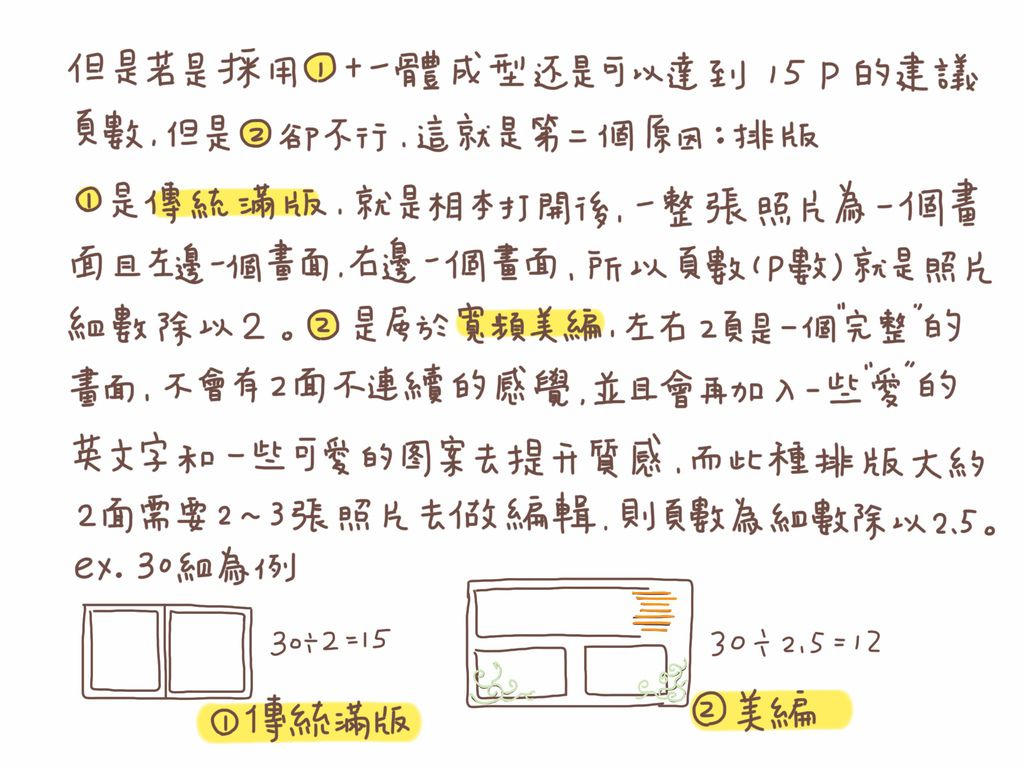 但是若是採用①+一體成型还是可以達到 15 P 的建議
頁數，但是②卻不行，這就是第二個原因：排版
①是傳統滿版，就是相本打開後，一整張照片為一個畫
面且左邊一個畫面，右邊一個畫面，所以頁數(P數)就是照片
組數除以2。②是居於寬頻美編，左右2頁是一個"完整"的
畫面，不會有2面不連續的感覺，並且會再加入一些"愛"的
英文字和一些可愛的图案去提升質感，而此種排版大約
2面需要2~3張照片去做編輯，則頁數為組數除以2.5。
ex. 30組為例
30÷2=15
30÷2.5=12
①傳統滿版
②美編